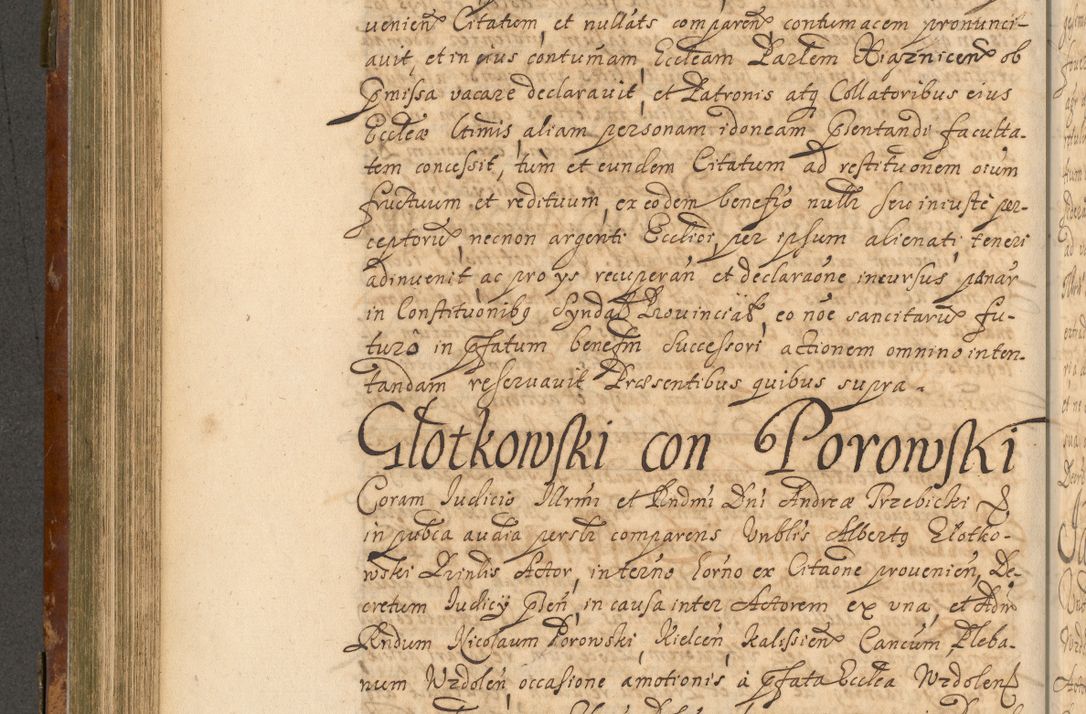 uenien Citatum, et nullats comparen contumacem pronunci-
auit, et in eius contumam Eccleam Parlem Wiaznicen ob
Pmissa vacare declarauit, et Patronis atq Collatoribus eius
Eccleæ ltimis, aliam personam idoneam Plentandi faculta-
tem concessit, tum et eundem Citatum ad restituonem oium
fructuum et redituum, ex eodem benefio nullr seu iniuste per-
ceptoru, necnon argenti Ecclioi, per ipsum alienati, teneri
adinuenit, ac pro ys recuperan et declaraone incursus pænar
in Constituonibq Syndal Prouincial, eo noe sancitaru fu-
turo in Pfatum benefm Successori actionem omnino inten-
tandam reseruauit Præsentibus quibus supra.
Głotkowski con Porowski
Coram Iudicio Illrmi et Rndmi Dni Andreæ Trzebicki
in pubca audia perslr comparens Vnblis Albertq Głotko-
wski Prinlis Actor, in termo horno ex Citaone prouenien, De-
cretum Iudicy Plen, in causa inter Actorem ex vna, et Adm
Rndum Nicolaum Porowski, Kielcen, Kalissien Cancum, Pleba-
num Wrdolen, occasione amotionis a Pfata Ecclea Wrdolen